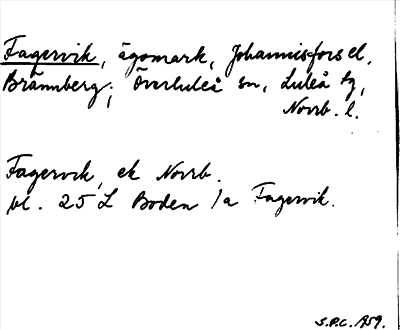 Fagervik, ägomark, Johannisfors el.
Brännberg; Överluleå sn, Luleå tg,
Norrb. l.
Fagervik, ek Norrb.
bl. 25 L Boden /a Fagervik.
S.P.C. 1959.